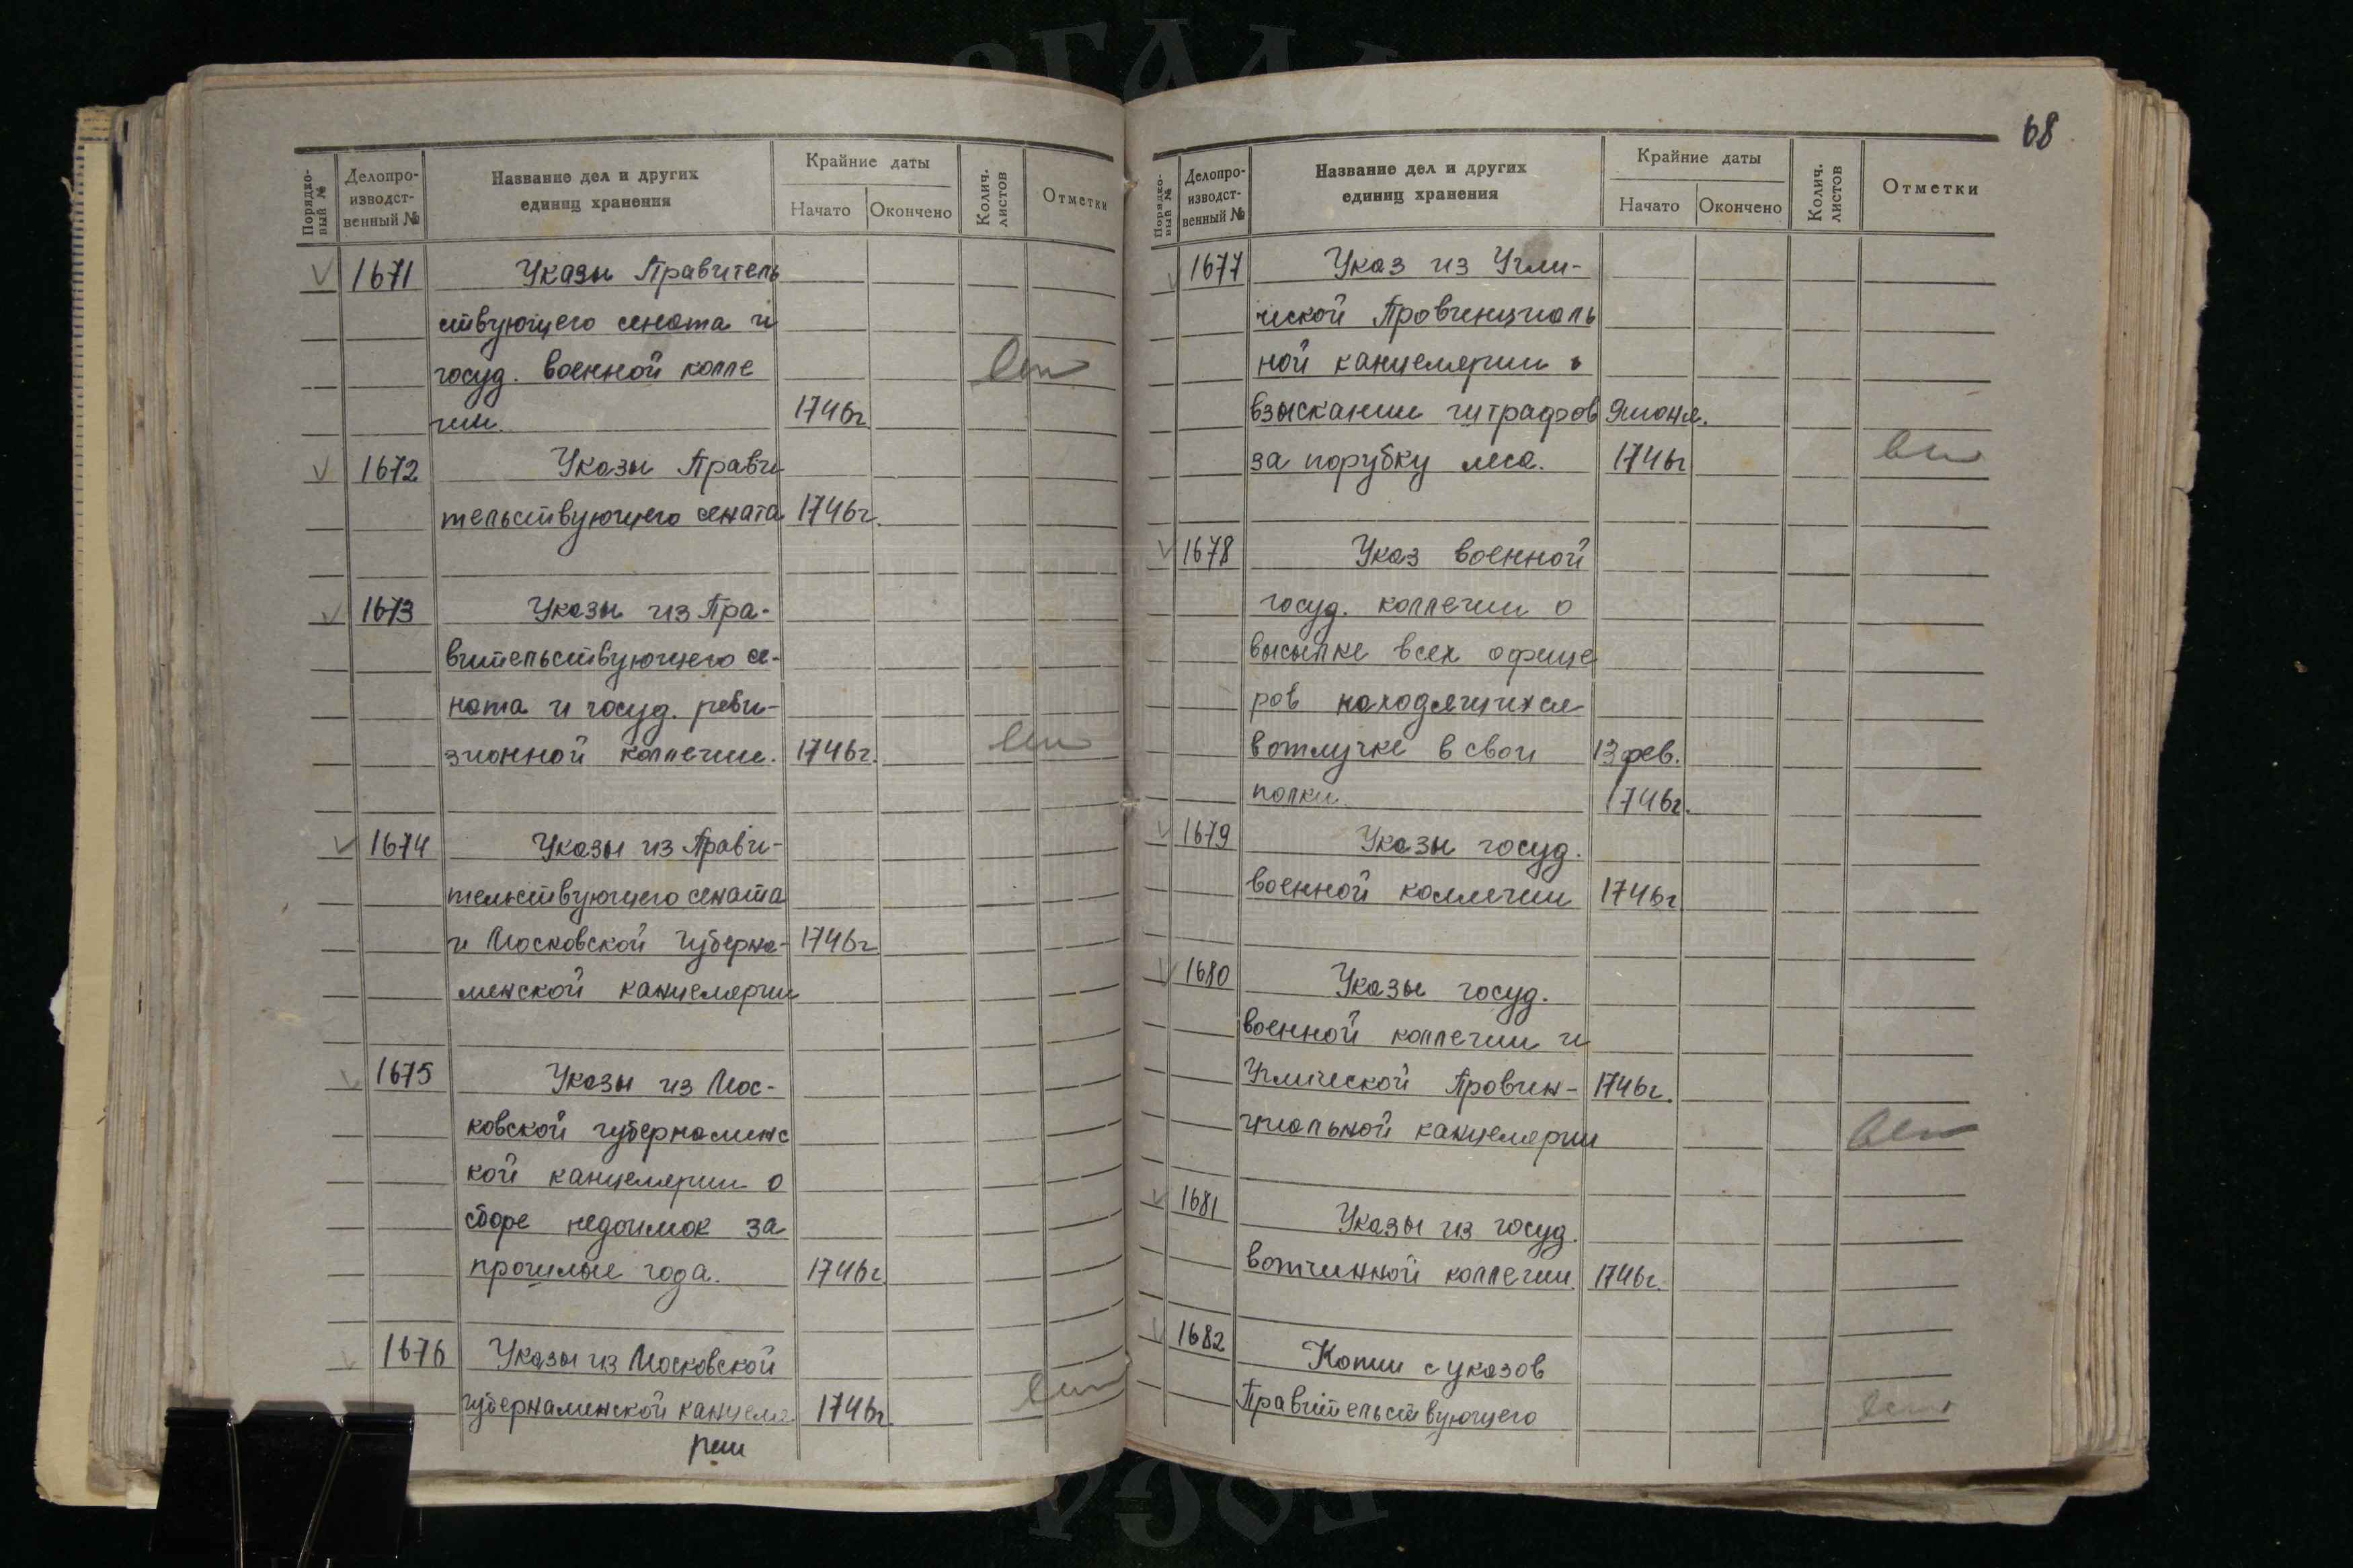 Порядко-
вый №
Делопро-
изводст-
венный №
Название дел и других
единиц хранения
Крайние даты
Начато
Окончено
Колич.
листов
Отметки
1671 Указы Правитель
ствующего сената и
госуд. военной колле
гии. 1746г.
1672 Указы Прави
тельствующего сената 1746г.
1673 Указы из Пра-
вительствующего се-
ната и госуд. реви-
зионной коллегии. 1746г.
1674 Указы из Прави-
тельствующего сената
и Московской губерна- 1746г
менской канцелярии
1675 Указы из Мос-
ковской губернаменс
кой канцелярии о
сборе недоимок за
прошлые года. 1746г.
1676 Указы из Московской
губернаменской канцеля 1746г.
рии
68
Порядко-
вый №
Делопро-
изводст-
венный №
Название дел и других
единиц хранения
Крайние даты
Начато
Окончено
Колич.
листов
Отметки
1677 Указ из Угли-
ческой Провинциаль
ной канцелярии о
взыскании штрафов 9июня.
за порубку леса. 1746г
1678 Указ военной
госуд. коллегии о
высылке всех офице
ров находящихся
вотлучке в свои 13фев.
полки. 1746г.
1679 Указы госуд.
военной коллегии 1746г
1680 Указы госуд.
военной коллегии и
Углической Провин- 1746г.
циальной канцелярии
1681 Указы из госуд.
вотчинной коллегии. 1746г.
1682 Копии с указов
Правительствующего